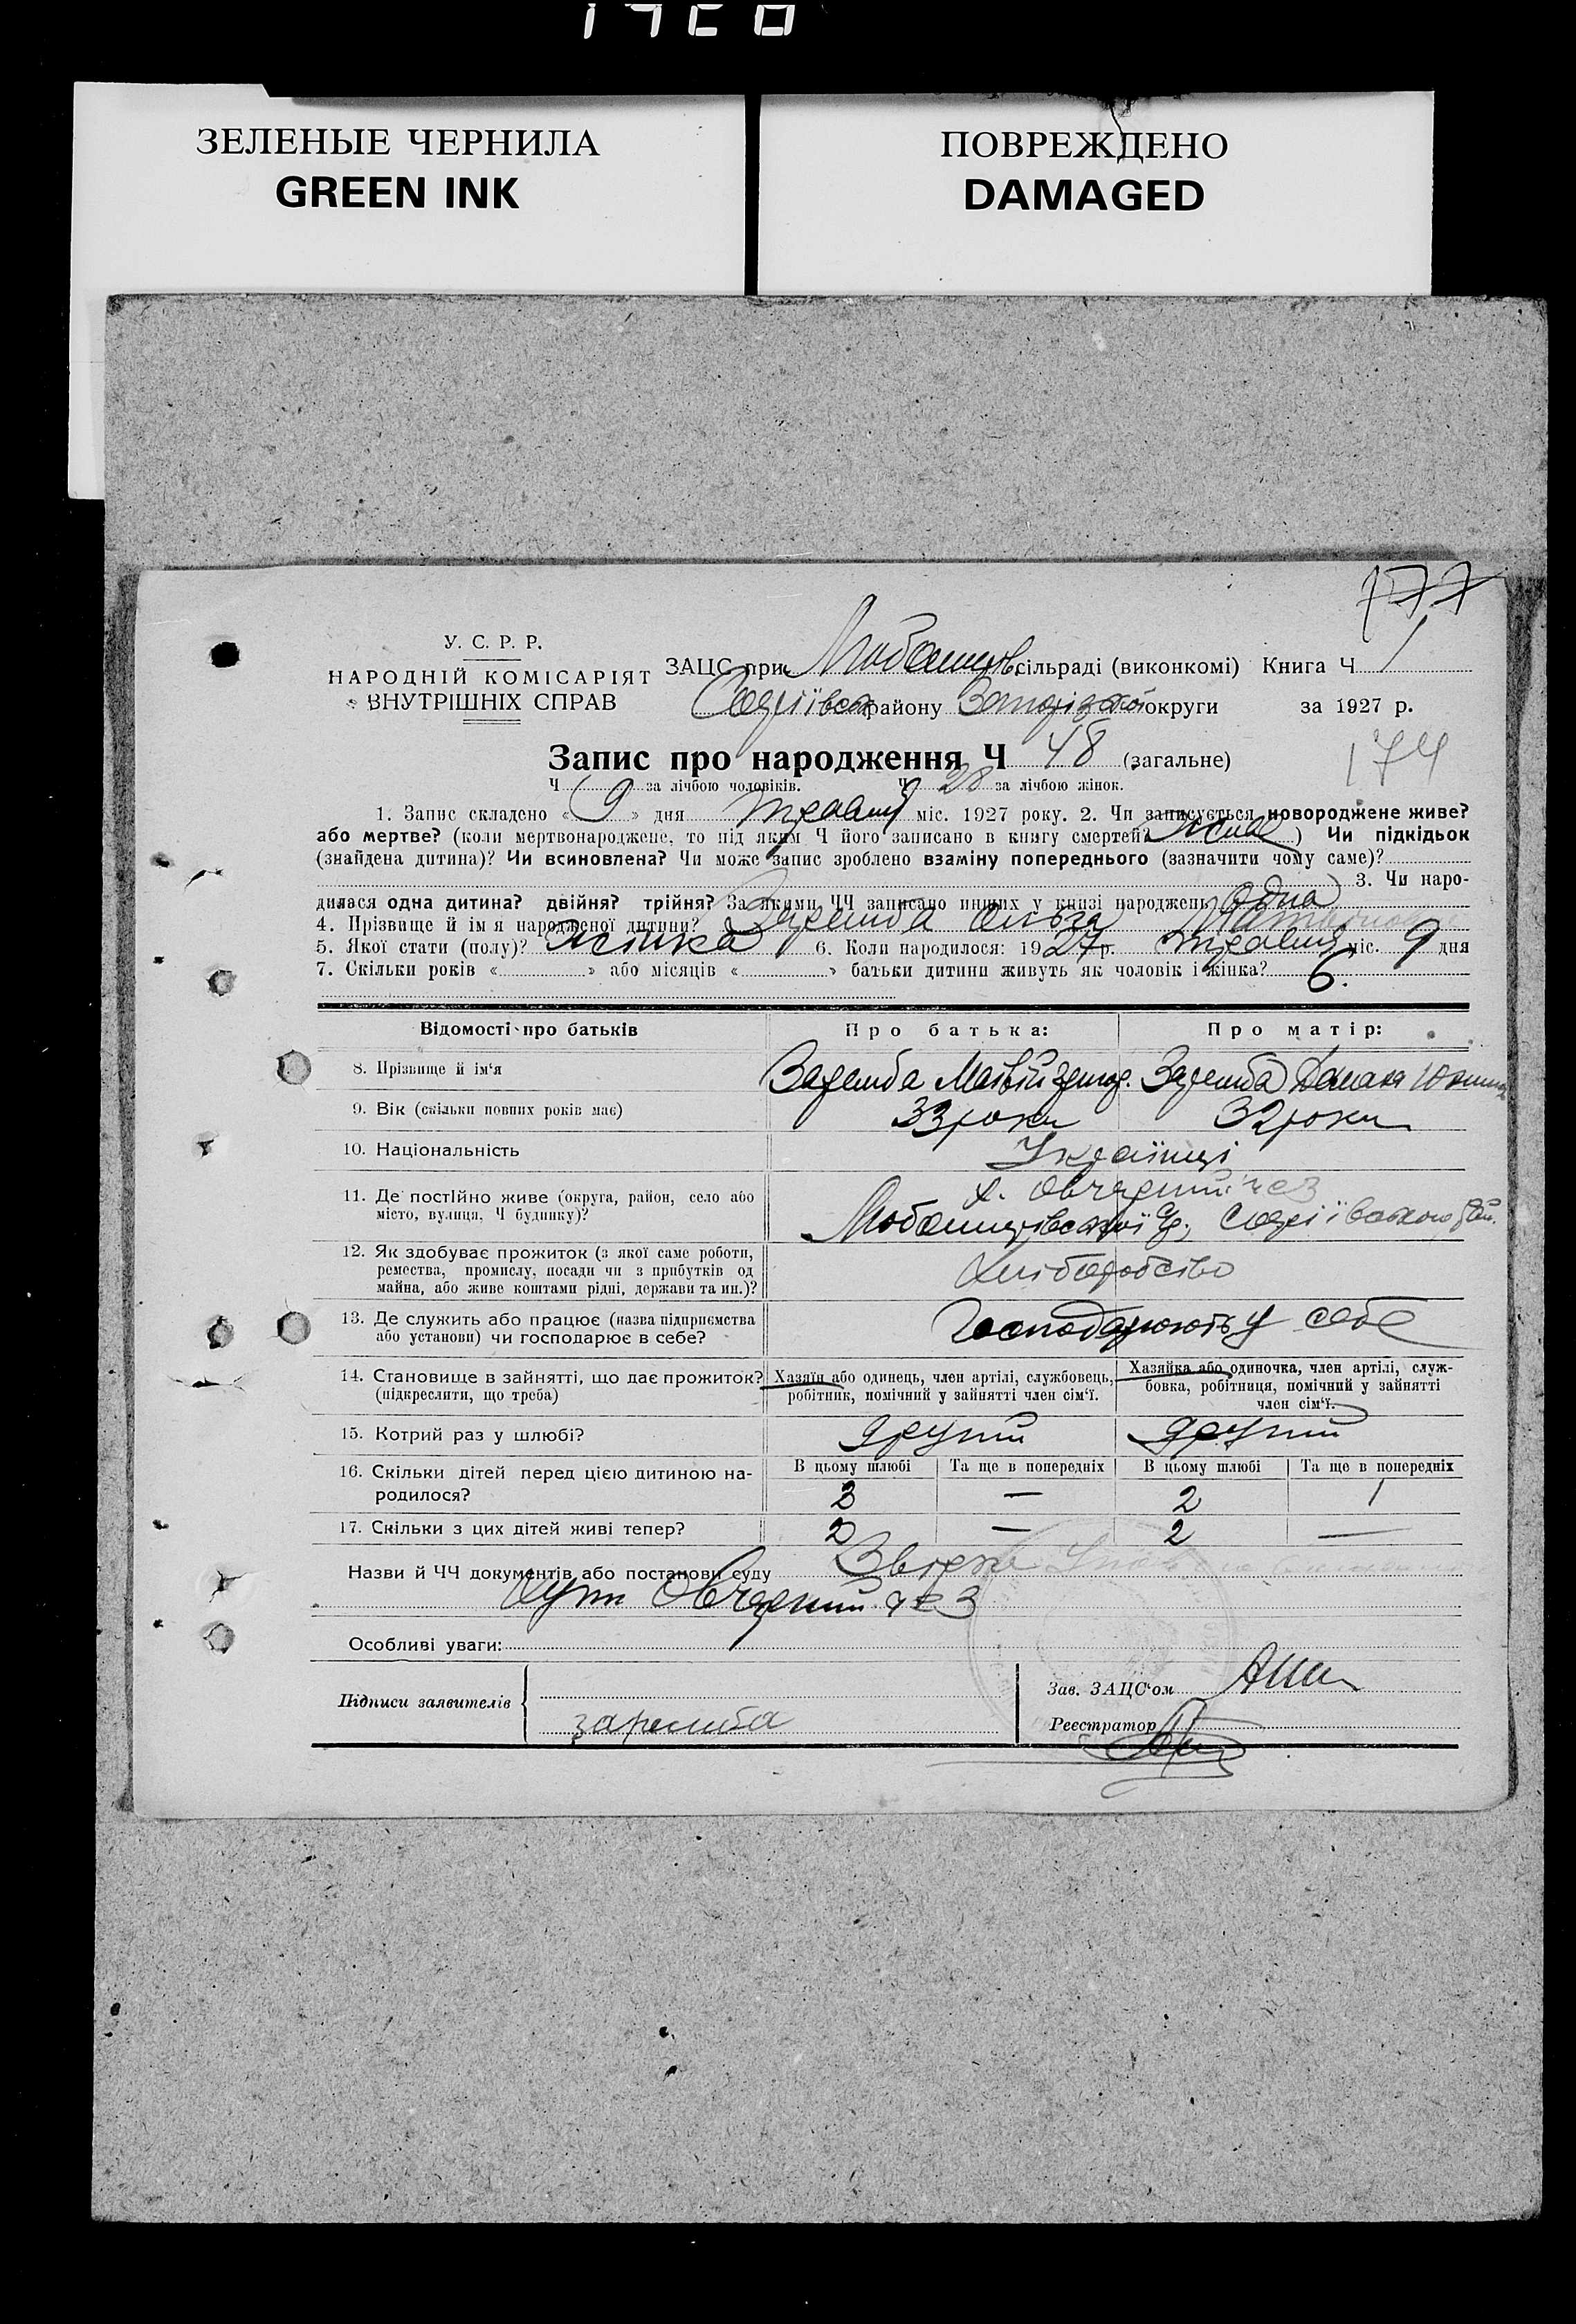 ЗЕЛЕНЫЕ ЧЕРНИЛА
GREEN INK
ПОВРЕЖДЕНО
DAMAGED
177
У. С. Р. Р.
НАРОДНІЙ КОМІСАРІЯТ
ВНУТРІШНІХ СПРАВ
ЗАЦС при сільраді (виконкомі) Книга Ч 1
району округи за 1927 р.
Запис про народження Ч 48 (загальне)
174
Ч за лічбою чоловіків. Ч 28 за лічбою жінок.
1. Запис складено « 9 » дня травня міс. 1927 року. 2. Чи записується новороджене живе?
або мертве? (коли мертвонароджене, то під яким Ч його записано в книгу смертей? живе ) Чи підкідьок
(знайдена дитина)? Чи всиновлена? Чи може запис зроблено взаміну попереднього (зазначити чому саме)?
3. Чи наро-
дилася одна дитина? двійня? трійня? За якими ЧЧ записано инших у книзі народжень одна
4. Прізвище й ім'я народженої дитини? Заремба Ольга
5. Якої стати (полу)? жінка 6. Коли народилося: 1927 р. травня міс. 9 дня
7. Скільки років « » або місяців « » батьки дитини живуть як чоловік і жінка? 6.
Відомості про батьків
Про батька:
Про матір:
8. Прізвище й ім'я
Заремба Матвій
Заремба
9. Вік (скільки повних років має)
33 роки
32 роки
10. Національність
Українці
11. Де постійно живе (округа, район, село або
місто, вулиця, Ч будинку)?
х. ч 23
12. Як здобуває прожиток (з якої саме роботи,
ремества, промислу, посади чи з прибутків од
майна, або живе коштами рідні, держави та ин.)?
Хліборобство
13. Де служить або працює (назва підприємства
або установи) чи господарює в себе?
Господарюють у себе
14. Становище в зайнятті, що дає прожиток?
(підкреслити, що треба)
Хазяїн або одинець, член артілі, службовець,
робітник, помічний у зайнятті член сім'ї.
Хазяйка або одиночка, член артілі, служ-
бовка, робітниця, помічний у зайнятті
член сім'ї.
15. Котрий раз у шлюбі?
другий
другий
16. Скільки дітей перед цією дитиною на-
родилося?
В цьому шлюбі
Та ще в попередніх
В цьому шлюбі
Та ще в попередніх
2
—
2
1
17. Скільки з цих дітей живі тепер?
2
—
2
—
Назви й ЧЧ документів або постанови суду
Особливі уваги:
Підписи заявителів
заремба
Зав. ЗАЦС'ом
Реєстратор